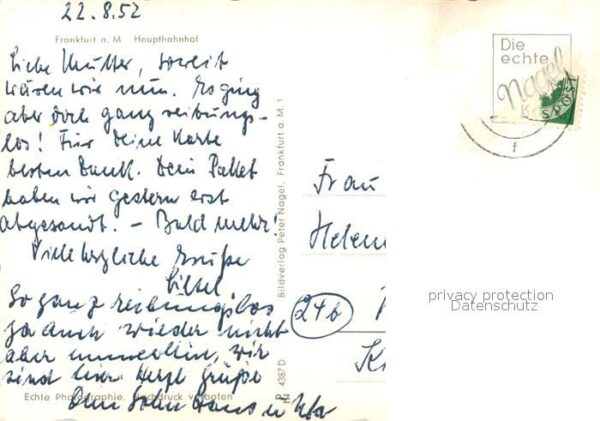 22.8.52
Frankfurt a. M. Hauptbahnhof
Liebe Mutter, soweit
wären wir nun. Es ging
aber doch ganz reibungs-
los! Für deine Karte
besten Dank. Dein Paket
haben wir gestern erst
abgesandt. – Bald mehr!
Viele herzliche Grüße
So ganz reibungslos
ja auch wieder nicht
aber immerhin, wir
sind hier. Herzl. Grüße
Dein Sohn Hans u.
Echte Photographie. Nachdruck verboten
4387 D
Bildverlag Peter Nagel, Frankfurt a. M. 1
Die
echte
Nagel
SPOST
f
Frau
Helen
24b
K
privacy protection
Datenschutz